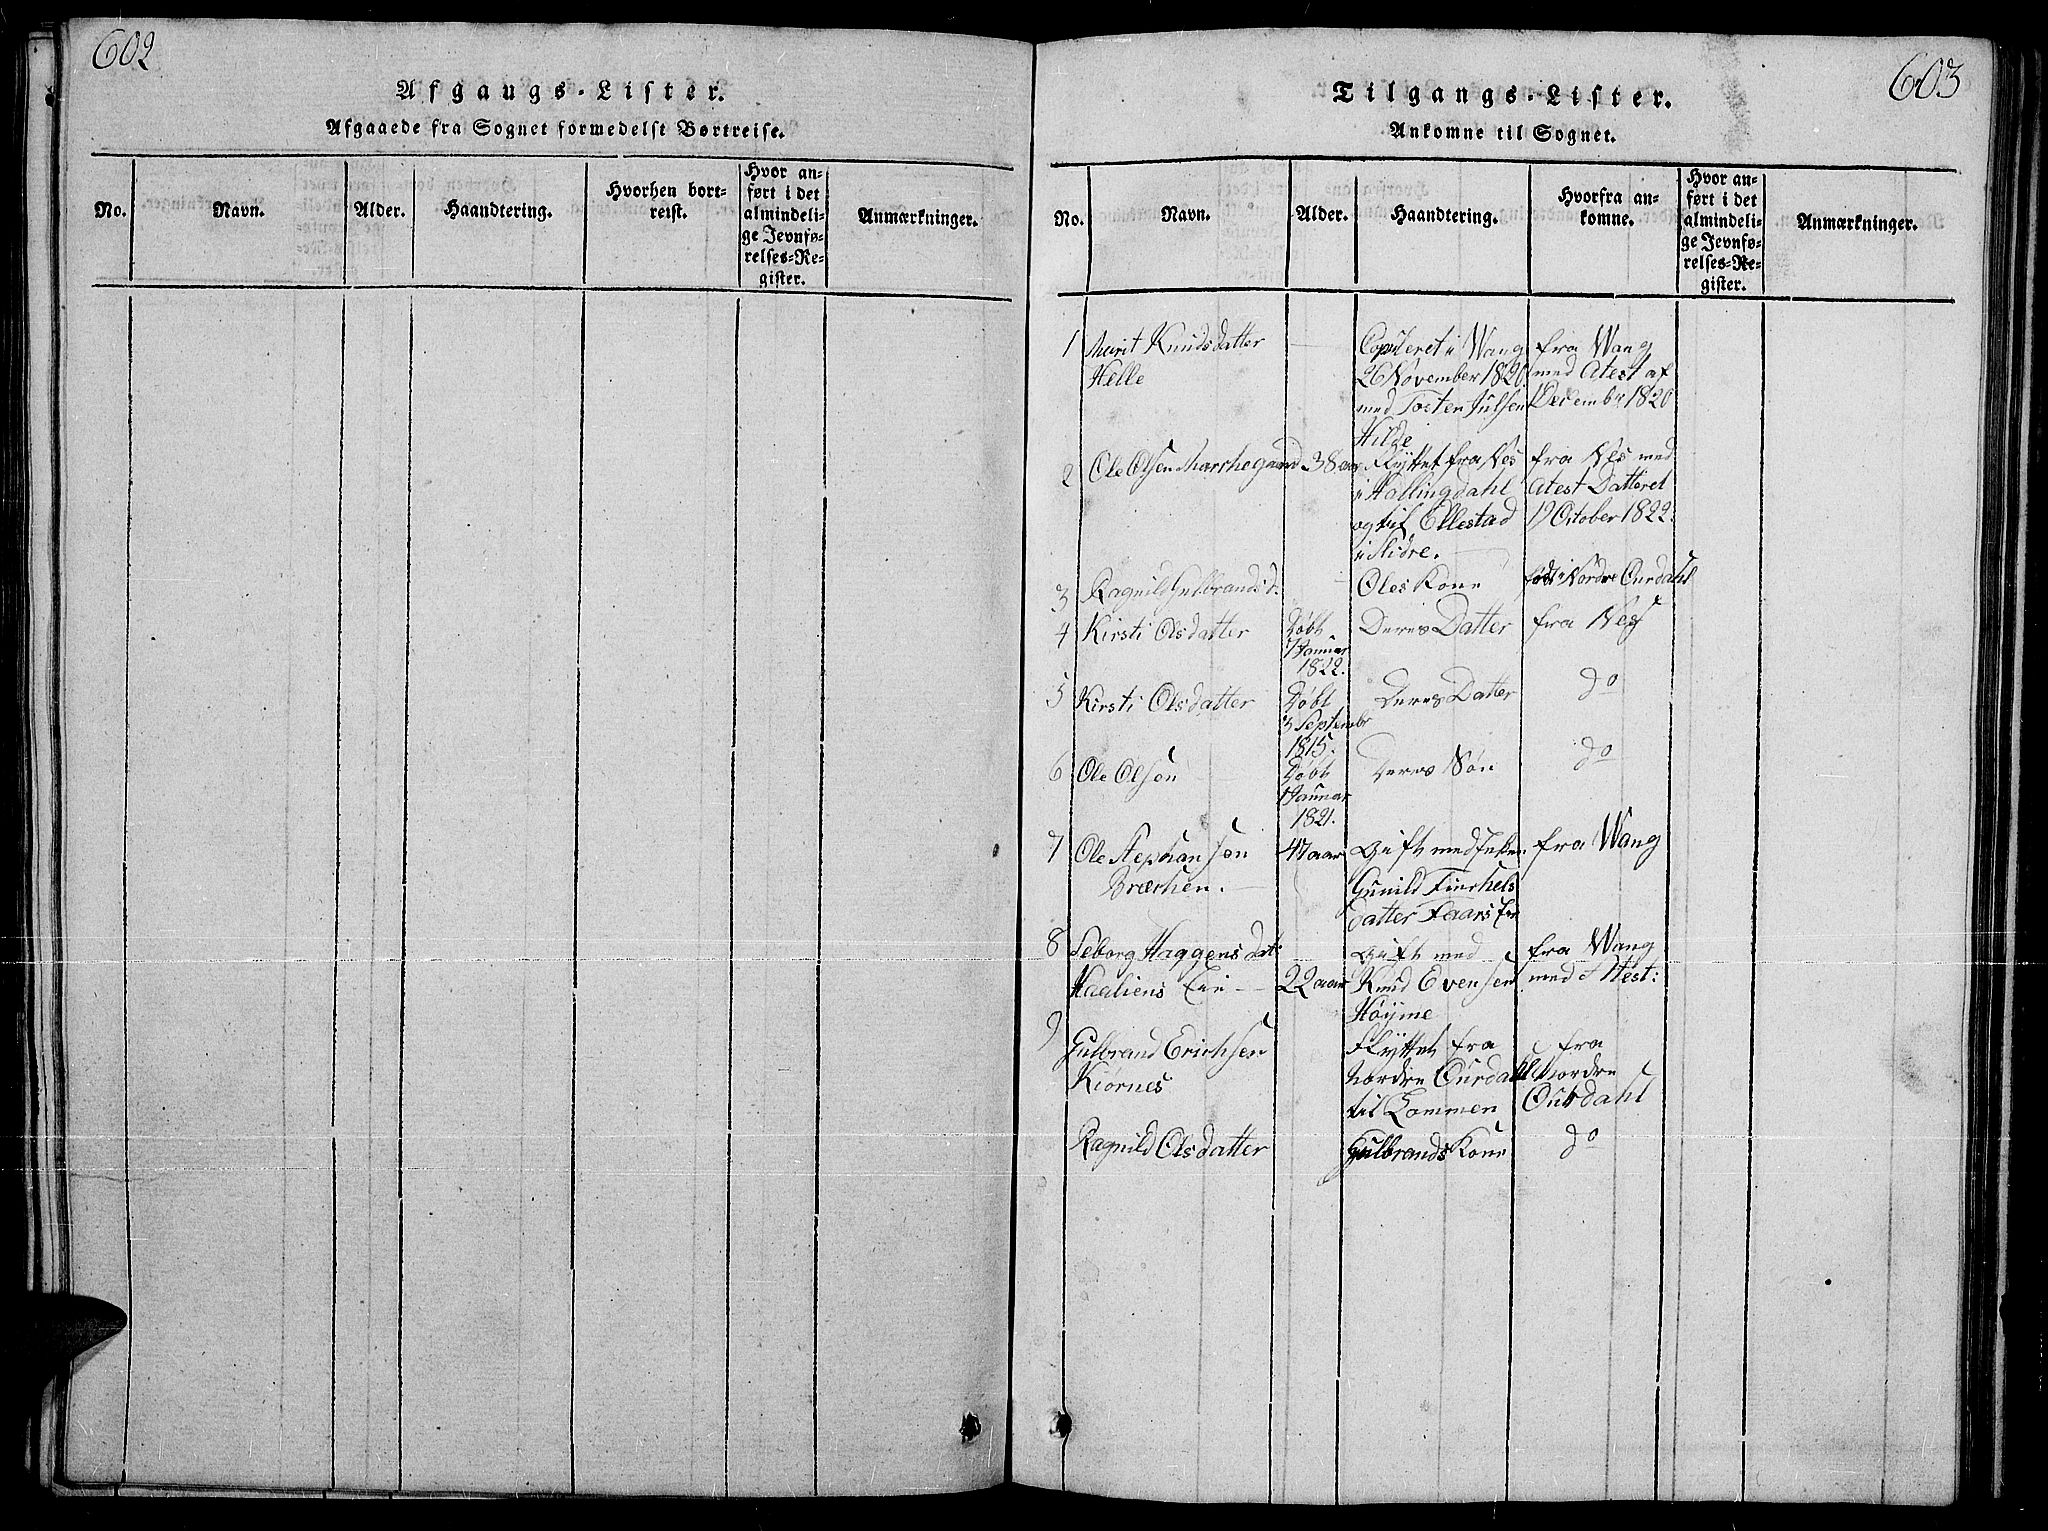 602
Afgangs-Lister.
Afgaaede fra Sognet formedelst Bortreise.
No.
Navn.
Alder.
Haandtering.
Hvorhen bort-
reist.
Hvor an-
ført i det
almindeli-
ge Jevnfø-
relses-Re-
gister.
Anmærkninger.
603
Tilgangs-Lister.
Ankomne til Sognet.
No.
Navn.
Alder.
Haandtering.
Hvorfra an-
komne.
Hvor an-
ført i det
almindeli-
ge Jevnfø-
relses-Re-
gister.
Anmærkninger.
1
Marit Knudsdatter
Helle
Copuleret i Wang
26 November 1820
med Tosten Julsen
Hilde
fra Wang
med Atest af
December 1820
2
Ole Olsen
38 aar
Flyttet fra Nes
i Hallingdahl
og til Ellestad
i Slidre.
fra Nes med
Atest Datteret
19 October 1822.
3
Ragnild Gulbrandsd.
Oles Kone
født i Nordre Ourdahl
4
Kirsti Olsdatter
Døbt
7 Januar
1822.
Deres Datter
fra Nes
5
Kirsti Olsdatter
Døbt
3 Septembr
1815.
Deres Datter
do
6
Ole Olsen
Døbt
1 Januar
1821.
Deres Søn
do
7
Ole Stephansøn
Bræchen.
47 aar
Gift med Enken
Gunild
datter
fra Wang
8
Seborg Haagensdat:
Haaliens Eie
22 aar
Gift med
Knud Evensen
Høyme
fra Wang
med Attest:
9
Gulbrand Erichsen
Kiørnes
Flyttet fra
Nordre Ourdahl
til Lommen
fra
Nordre
Ourdahl
Ragnild Olsdatter
Gulbrands Kone
do